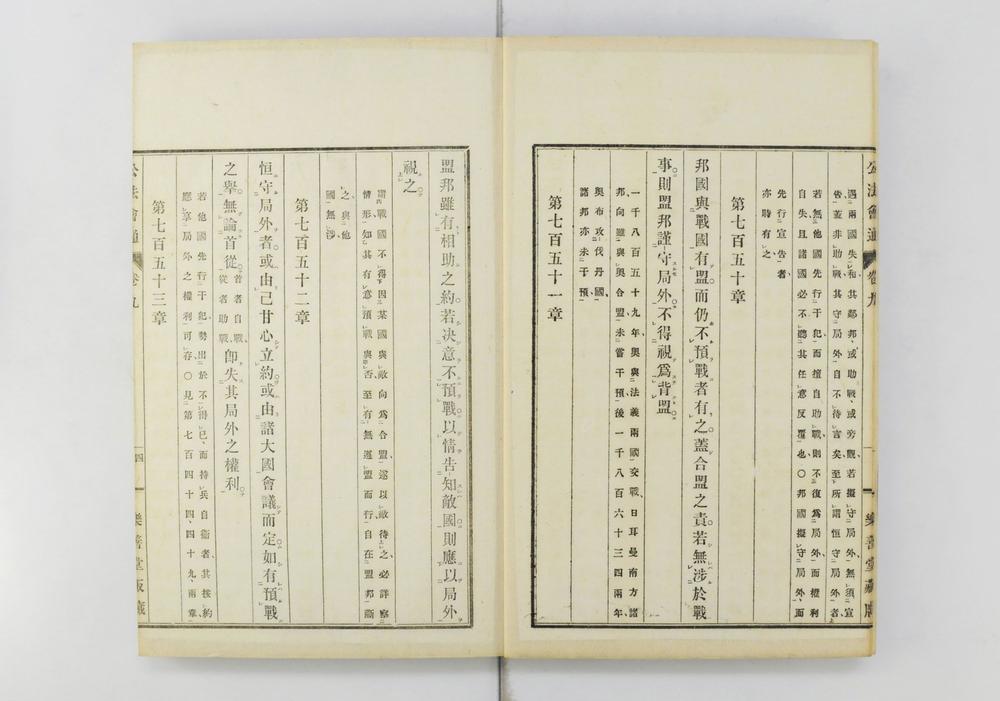 公法會通 卷九
樂善堂藏版
遇兩國失和其鄰邦、或助戰、或旁觀若擬守局外、無須宣
告、蓋非助戰、其守局外自不待言矣、至所謂恒守局外者、
若無他國先行干犯而擅自助戰、則不復爲局外、而權利
自失且諸國必不聽其任意反覆也〇邦國擬守局外、而
先行宣告者
亦時有之
第七百五十章
邦國與戰國有盟而仍不預戰者有之蓋合盟之責若無涉於戰
事則盟邦謹守局外不得視爲背盟
一千八百五十九年奧與法義兩國交戰、日耳曼南方諸
邦向雖與奧合盟未嘗干預後一千八百六十三四兩年
奧布攻伐丹國
諸邦亦未干預
第七百五十一章
盟邦雖有相助之約若決意不預戰以情告知敵國則應以局外
視之
謂戰國不得因某國與敵向爲合盟遂以敵待之必詳察
情形知其有意預戰與否至有無違盟而行自在盟邦斷
之與他
國無涉
第七百五十二章
恒守局外者或由己甘心立約或由諸大國會議而定如有預戰
之舉無論首從首者自戰、從者助戰、卽失其局外之權利
若他國先行干犯勢出於不得已、而持兵自衞者、其按約
應享局外之權利可存〇見第七百四十四、四十九兩章
第七百五十三章
公法會通 卷九
四
樂善堂版藏